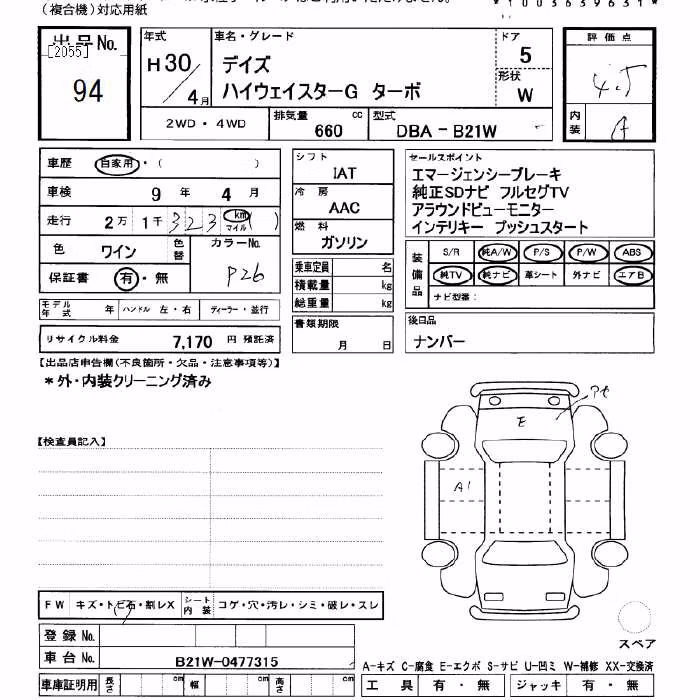 (複合機)対応用紙
*1003639631*
出品No.
[2055]
94
年式
H30/4月
車名・グレード
デイズ
ハイウェイスターG ターボ
ドア
5
形状
W
評価点
4.5
内装
A
2WD・4WD
排気量
660 cc
型式
DBA - B21W
車歴 自家用・( )
車検 9年 4月
走行 2万 1千 323 km マイル ( )
色 ワイン 色替
カラーNo.
P26
保証書 有・無
モデル年式 年 ハンドル 左・右 ディーラー・並行
リサイクル料金 7,170 円 預託済
シフト
IAT
冷房
AAC
燃料
ガソリン
乗車定員 名
積載量 kg
総重量 kg
書類期限
月 日
セールスポイント
エマージェンシーブレーキ
純正SDナビ フルセグTV
アラウンドビューモニター
インテリキー プッシュスタート
装備品
S/R 純A/W P/S P/W ABS
純TV 純ナビ 革シート 外ナビ エアB
ナビ型番:
後日品
ナンバー
【出品店申告欄(不良箇所・欠品・注意事項等)】
*外・内装クリーニング済み
【検査員記入】
E
A1
FW キズ・トビ石・割レX シート内装 コゲ・穴・汚レ・シミ・破レ・スレ
登録No.
車台No. B21W-0477315
車庫証明用 長さ cm 幅 cm 高さ cm
スペア
A-キズ C-腐食 E-エクボ S-サビ U-凹ミ W-補修 XX-交換済
工具 有・無 ジャッキ 有・無